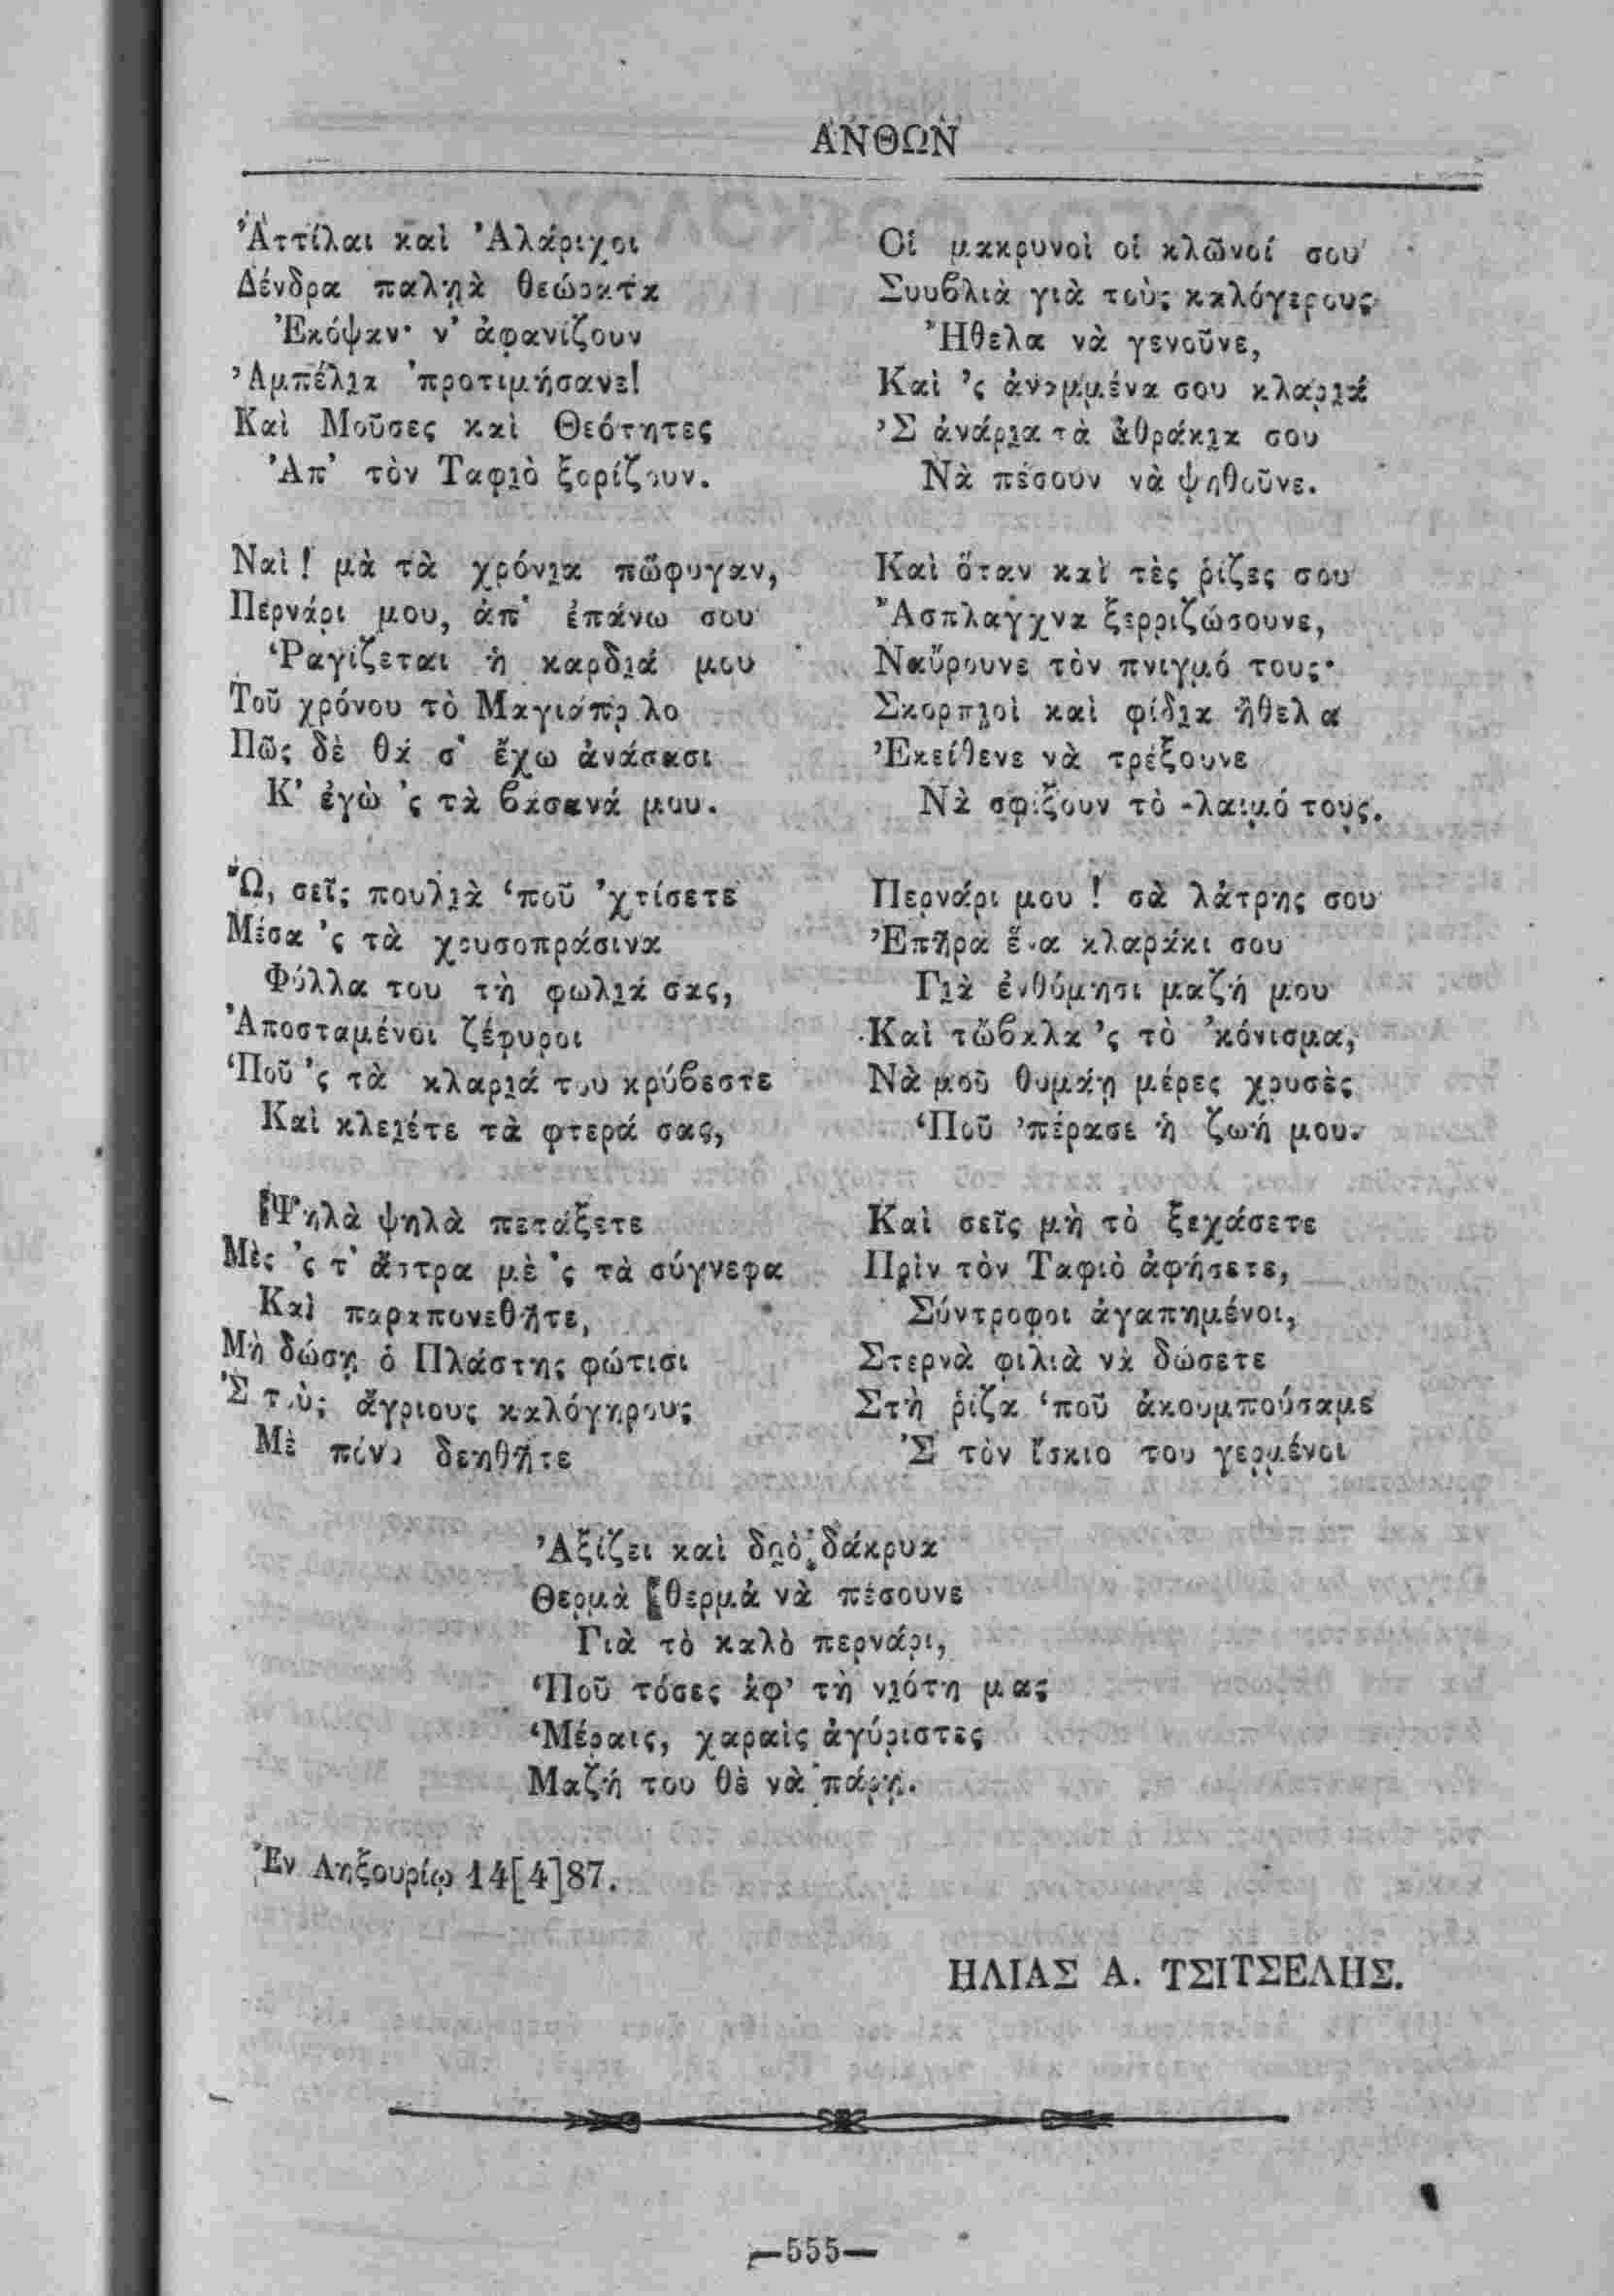 ΑΝΘΩΝ
Ἀττίλαι καὶ Ἀλάριχοι
Δένδρα παληὰ θεώρατα
Ἐκόψαν· ν' ἀφανίζουν
Ἀμπέλια 'προτιμήσανε!
Καὶ Μοῦσες καὶ Θεότητες
Ἀπ' τὸν Ταφιὸ ξορίζουν.
Ναὶ! μὰ τὰ χρόνια πὤφυγαν,
Περνάρι μου, ἀπ' ἐπάνω σου
Ῥαγίζεται ἡ καρδιά μου
Τοῦ χρόνου τὸ Μαγιάπριλο
Πῶς δὲ θά σ' ἔχω ἀνάσασι
Κ' ἐγὼ 'ς τὰ βάσανά μου.
Ὢ, σεῖς πουλιὰ 'ποῦ 'χτίσετε
Μέσα 'ς τὰ χρυσοπράσινα
Φύλλα του τὴ φωλιά σας,
Ἀποσταμένοι ζέφυροι
Ποῦ 'ς τὰ κλαριά του κρύβεστε
Καὶ κλειέτε τὰ φτερά σας,
Ψηλὰ ψηλὰ πετάξετε
Μὲς 'ς τ' ἄστρα μὲ 'ς τὰ σύγνεφα
Καὶ παραπονεθῆτε,
Μὴ δώσῃ ὁ Πλάστης φώτισι
Σ τοὺς ἄγριους καλόγηρους
Μὲ πόνο δεηθῆτε
Οἱ μακρυνοὶ οἱ κλῶνοί σου
Συυβλιὰ γιὰ τοὺς καλόγερους
Ἤθελα νὰ γενοῦνε,
Καὶ 'ς ἀναμμένα σου κλαριά
Σ ἀνάρια τὰ ἀθράκια σου
Νὰ πέσουν νὰ ψηθοῦνε.
Καὶ ὅταν καὶ τὲς ῥίζες σου
Ἄσπλαγχνα ξερριζώσουνε,
Ναὔρουνε τὸν πνιγμό τους·
Σκορπιοὶ καὶ φίδια ἤθελα
Ἐκείθενε νὰ τρέξουνε
Νὰ σφίξουν τὸ λαιμό τους.
Περνάρι μου! σὰ λάτρης σου
Ἐπῆρα ἕνα κλαράκι σου
Γιὰ ἐνθύμησι μαζή μου
Καὶ τὤβαλα 'ς τὸ 'κόνισμα,
Νὰ μοῦ θυμάῃ μέρες χρυσὲς
Ποῦ 'πέρασε ἡ ζωή μου.
Καὶ σεῖς μὴ τὸ ξεχάσετε
Πρὶν τὸν Ταφιὸ ἀφήσετε,
Σύντροφοι ἀγαπημένοι,
Στερνὰ φιλιὰ νὰ δώσετε
Στὴ ῥίζα 'ποῦ ἀκουμπούσαμε
Σ τὸν ἴσκιο του γερμένοι
Ἀξίζει καὶ δυὸ δάκρυα
Θερμὰ θερμὰ νὰ πέσουνε
Γιὰ τὸ καλὸ περνάρι,
Ποῦ τόσες ἀφ' τὴ νιότη μας
Μέραις, χαραὶς ἀγύριστες
Μαζή του θὲ νὰ πάρῃ.
Ἐν Ληξουρίῳ 14[4]87.
ΗΛΙΑΣ Α. ΤΣΙΤΣΕΛΗΣ.
—555—